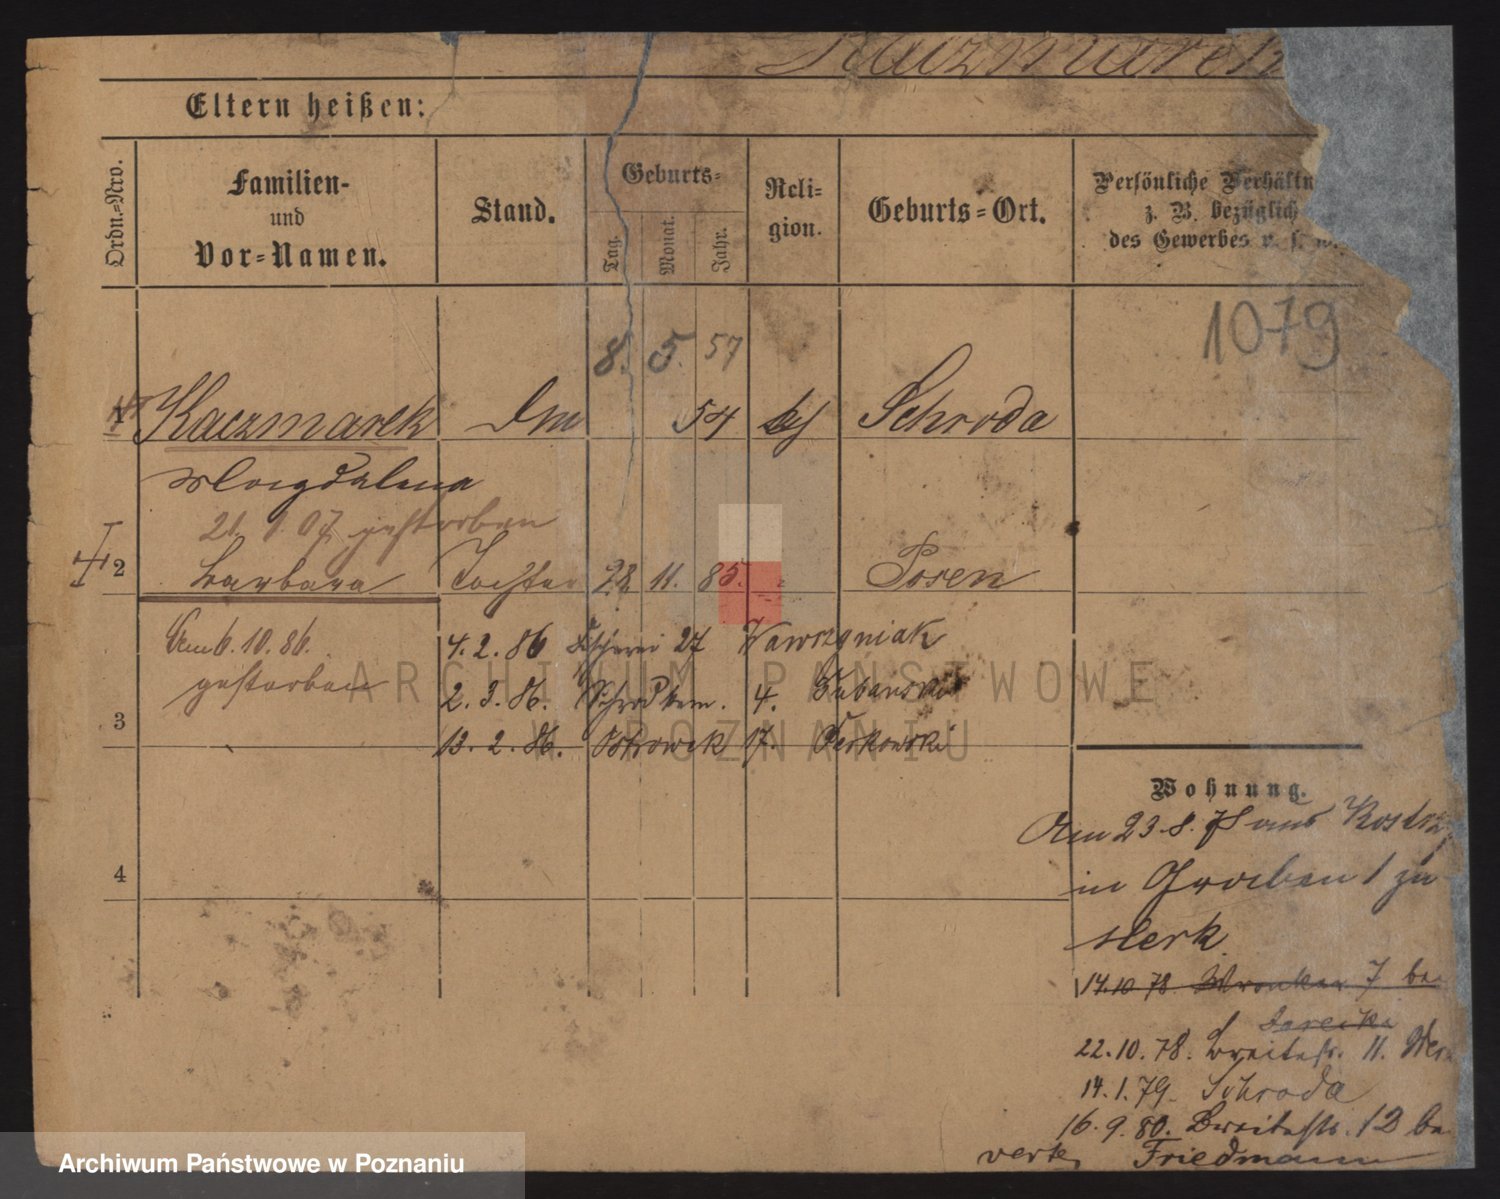 Kaczmarek
Eltern heißen:
Ordn.-Nro.
Familien-
und
Vor-Namen.
Stand.
Geburts-
Tag.
Monat.
Jahr.
Reli-
gion.
Geburts-Ort.
Persönliche Verhältn
z. B. bezüglich
des Gewerbes u. s. w.
1079
8. 5. 57
Kaczmarek 54 Schroda
Magdalena
21. 1. 07 gestorben
2 Barbara Tochter 22 11. 85. Posen
Am 6. 10. 86.
gestorben
4. 2. 86 Fischerei 27 Wawrzyniak
2. 3. 86. 4.
3
13. 2. 86. Ostrowek 17.
ARCHIWUM PAŃSTWOWE
W POZNANIU
Wohnung.
Am 23. 8. 78 aus Kostrz
in Graben 1 zu
4
Merk
14. 10. 78. Wronker 7 be
22. 10. 78. Breitestr. 11.
14. 1. 79. Schroda
16. 9. 80. Breitestr. 12 be
Friedmann
Archiwum Państwowe w Poznaniu